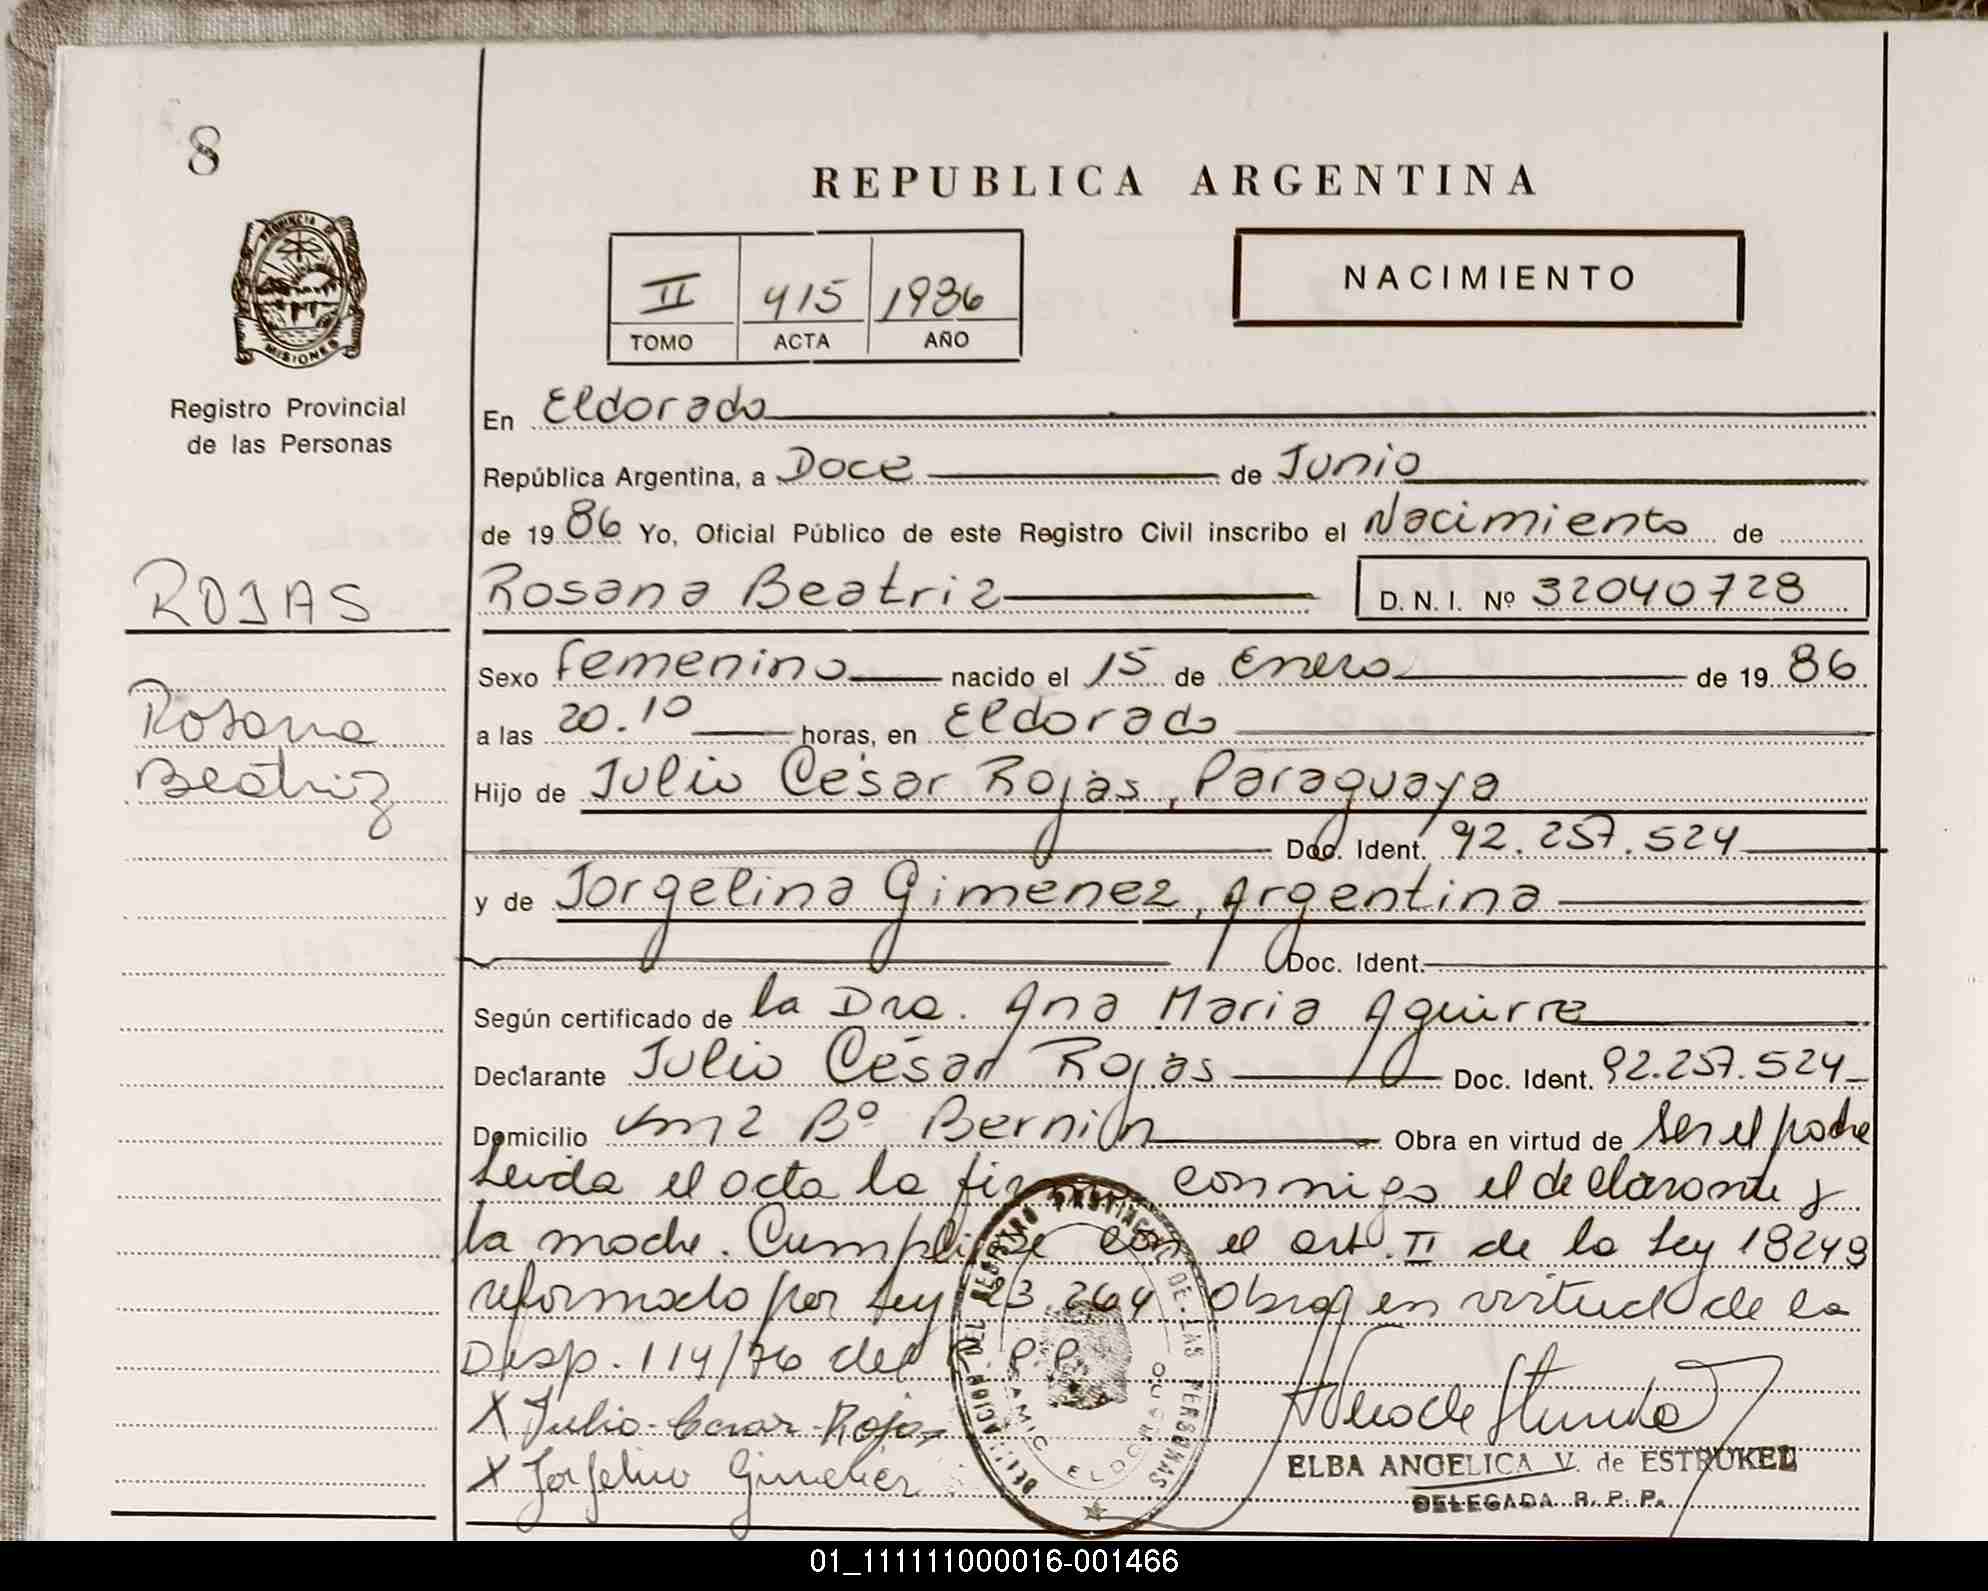 8
PROVINCIA DE
MISIONES
Registro Provincial
de las Personas
ROJAS
Rosana
Beatriz
REPUBLICA ARGENTINA
II 415 1986
TOMO ACTA AÑO
NACIMIENTO
En Eldorado
República Argentina, a Doce de Junio
de 1986 Yo, Oficial Público de este Registro Civil inscribo el Nacimiento de
Rosana Beatriz D. N. I. Nº 32040728
Sexo femenino nacido el 15 de Enero de 1986
a las 20.10 horas, en Eldorado
Hijo de Julio César Rojas, Paraguaya
Doc. Ident. 92.257.524
y de Jorgelina Gimenez, Argentina
Doc. Ident.
Según certificado de la Dra. Ana Maria Aguirre
Declarante Julio César Rojas Doc. Ident. 92.257.524
Domicilio km 2 Bº Bernin Obra en virtud de ser el padre
Leida el acta la firma conmigo el declarante y
la madre. Cumplise con el art. II de la Ley 18248
reformado por Ley 23.264 Obrar en virtud de la
Disp. 114/76 del R.P.P.
X Julio Cesar Rojas
X Jorgelina Gimenez
REGISTRO PROVINCIAL DE LAS PERSONAS
ELDORADO
ELBA ANGELICA V. de ESTRUKEL
DELEGADA R. P. P.
01_111111000016-001466